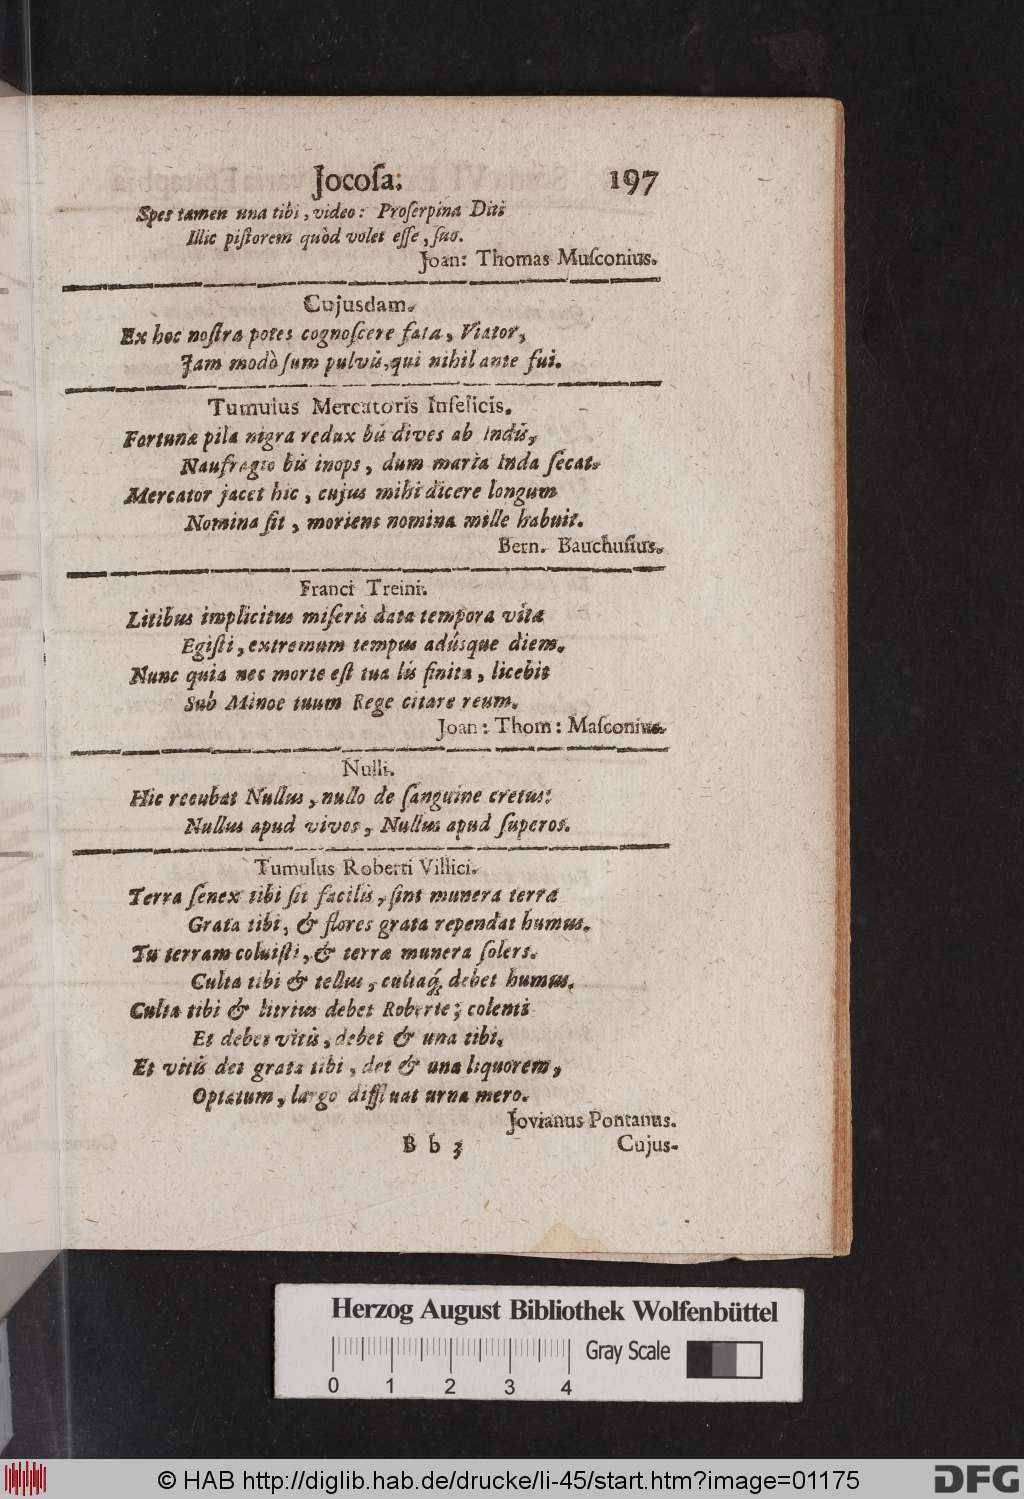 Jocoſa. 197
Spes tamen una tibi, video: Proſerpina Diti
Illic piſtorem quòd volet eſſe, ſuo.
Joan: Thomas Muſconius.
Cujusdam.
Ex hoc noſtra potes cognoſcere fata, Viator,
Jam modò ſum pulvis, qui nihil ante fui.
Tumulus Mercatoris Infelicis.
Fortunæ pila nigra redux bis dives ab Indis,
Naufragio bis inops, dum maria Inda ſecat.
Mercator jacet hic, cujus mihi dicere longum
Nomina ſit, moriens nomina mille habuit.
Bern. Bauchuſius.
Franci Treini.
Litibus implicitus miſeris data tempora vitæ
Egiſti, extremum tempus adúsque diem.
Nunc quia nec morte eſt tua lis finita, licebit
Sub Minoe tuum Rege citare reum.
Joan: Thom: Maſconius.
Nulli.
Hic recubat Nullus, nullo de ſanguine cretus:
Nullus apud vivos, Nullus apud ſuperos.
Tumulus Roberti Villici.
Terra ſenex tibi ſit facilis, ſint munera terræ
Grata tibi, & flores grata rependat humus.
Tu terram coluiſti, & terræ munera ſolers.
Culta tibi & tellus, cultaq́; debet humus.
Culta tibi & litrius debet Roberte; colenti
Et debet vitis, debet & una tibi,
Et vitis det grata tibi, det & una liquorem,
Optatum, largo diffluat urna mero.
Jovianus Pontanus.
B b 3 Cujus-
Herzog August Bibliothek Wolfenbüttel
Gray Scale
0 1 2 3 4
© HAB http://diglib.hab.de/drucke/li-45/start.htm?image=01175 DFG